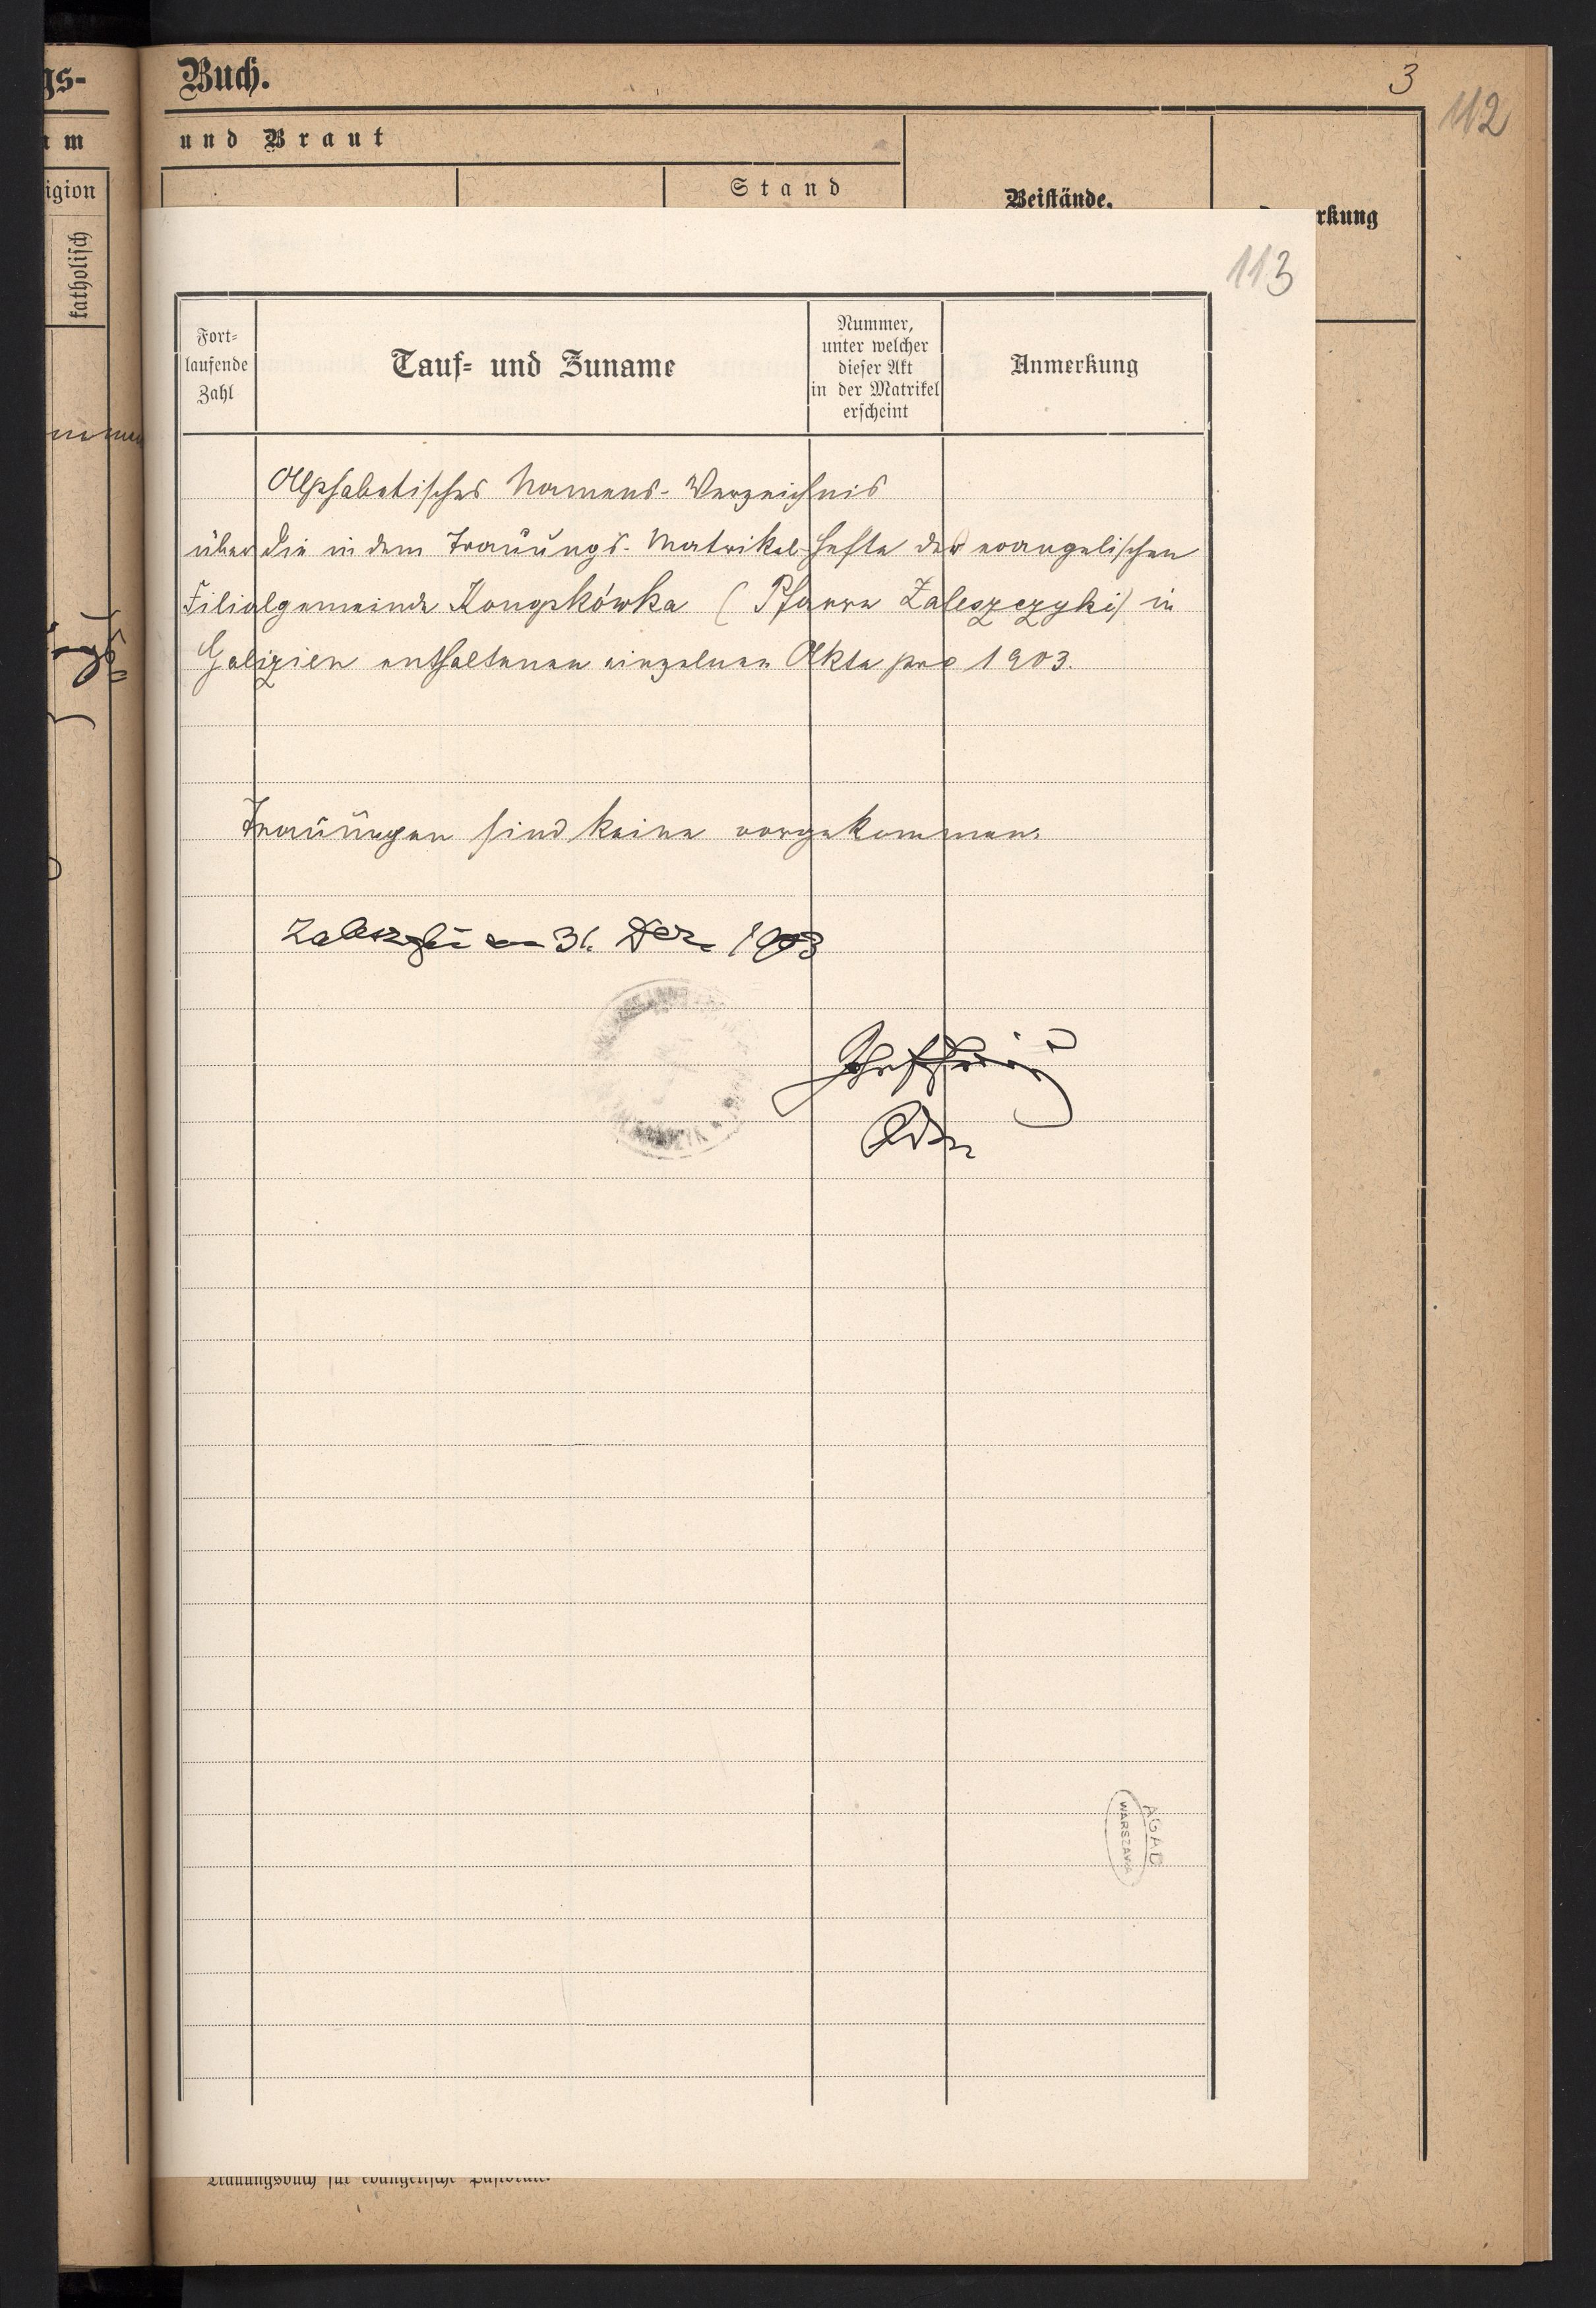 gs-
Buch.
3
112
m
und Braut
igion
Stand
Beistände.
rkung
katholisch
113
Fort-
laufende
Zahl
Tauf- und Zuname
Nummer,
unter welcher
dieser Akt
in der Matrikel
erscheint
Anmerkung
Alphabetisches Namens-Verzeichnis
über die in dem Trauungs-Matrikel-Hefte der evangelischen
Filialgemeinde Konopkówka (Pfarre Zaleszczyki) in
Galizien enthaltenen einzelnen Akte pro 1903.
Trauungen sind keine vorgekommen.
Zaleszczyki am 31. Dez. 1903
AGAD
WARSZAWA
Trauungsbuch für evangelische Pastorate.